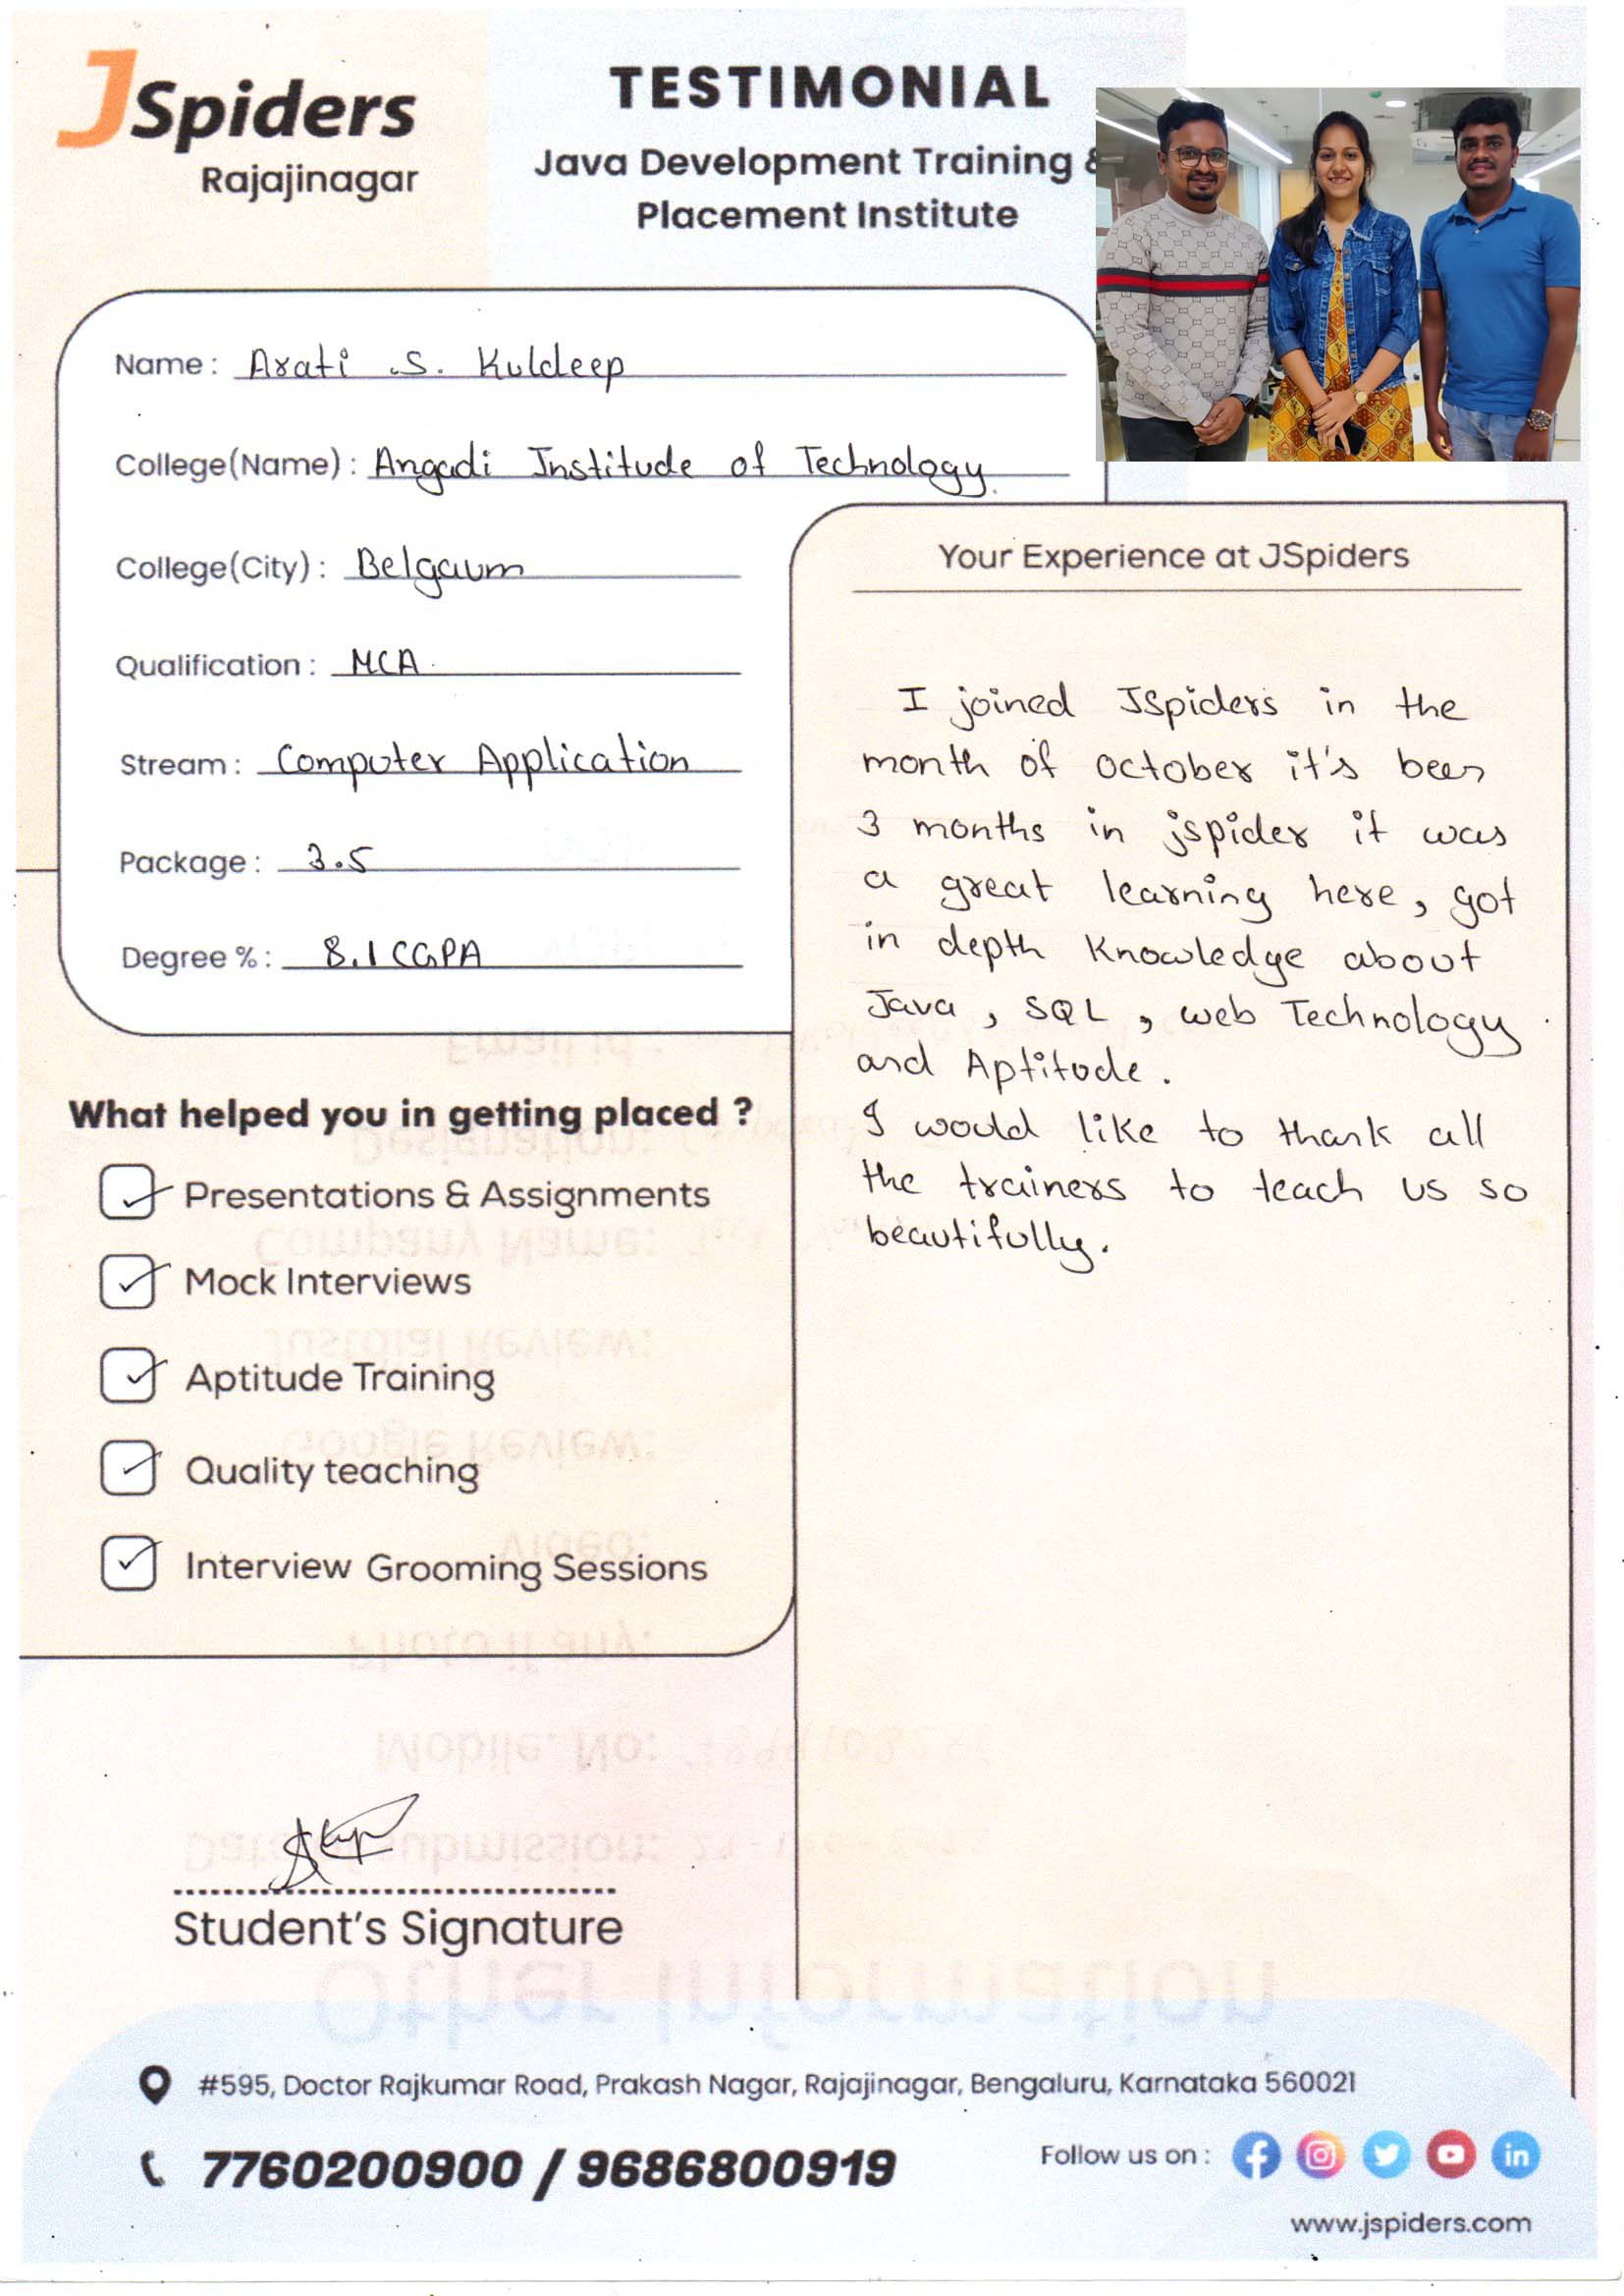 JSpiders
Rajajinagar
TESTIMONIAL
Java Development Training &
Placement Institute
Name : Arati .S. Kuldeep
College(Name) : Angadi Institude of Technology.
College(City) : Belgaum
Qualification : MCA.
Stream : Computer Application
Package : 3.5
Degree % : 8.1 CGPA
What helped you in getting placed ?
Presentations & Assignments
Mock Interviews
Aptitude Training
Quality teaching
Interview Grooming Sessions
Student's Signature
Your Experience at JSpiders
I joined JSpiders in the
month of october it's been
3 months in jspider it was
a great learning here, got
in depth Knowledge about
Java, SQL, web Technology
and Aptitude.
I would like to thank all
the trainers to teach us so
beautifully.
Email id :
Designation:
Company Name:
Justdial Review:
Google Review:
Video:
Photo if any:
Mobile. No:
Date submission:
Other Information
#595, Doctor Rajkumar Road, Prakash Nagar, Rajajinagar, Bengaluru, Karnataka 560021
7760200900 / 9686800919
Follow us on :
www.jspiders.com